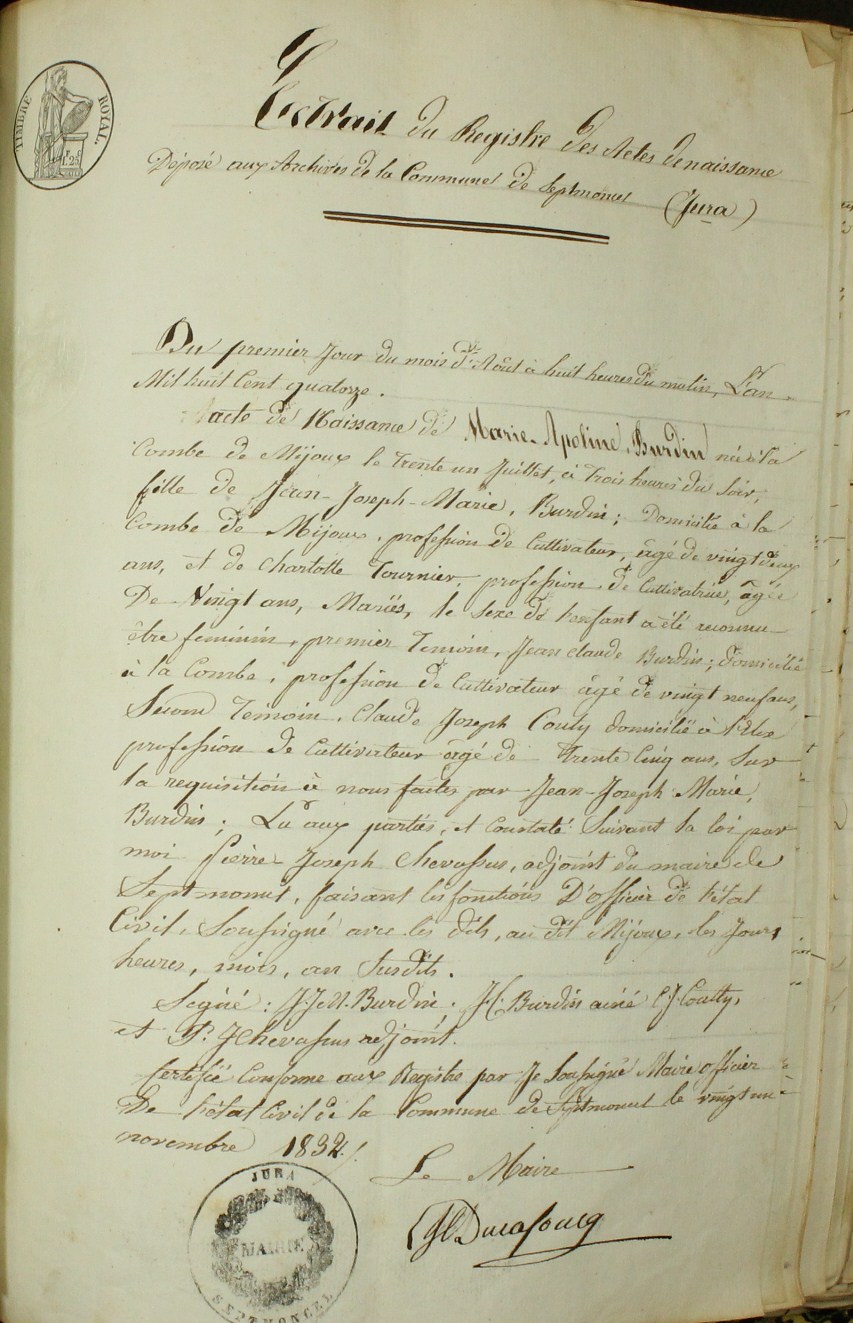 TIMBRE ROYAL.
1f 25c
Extrait du Registre des Actes de naissance
Déposé aux Archives de la Commune de Septmoncel (Jura)
Du premier Jour du mois d'Août à huit heures du matin, L'an
Mil huit Cent quatorze.
acte de Naissance de Marie-Apoline, Burdin née à la
Combe de Mijoux le trente un Juillet, à Trois heures du Soir,
fille de Jean-Joseph-Marie, Burdin; Domicilié à la
Combe de Mijoux, profession de Cultivateur, âgé de vingt deux
ans, et de Charlotte Tournier, profession de Cultivatrice, âgée
De Vingt ans, Mariés, le sexe de l'enfant a été reconnu
être feminin, premier Temoin, Jean Claude Burdin; domicilié
à la Combe, profession de Cultivateur âgé de vingt neuf ans,
Second Temoin, Claude Joseph Couty domicilié à
profession de Cultivateur âgé de Trente Cinq ans, Sur
la requisition à nous faite par Jean-Joseph Marie,
Burdin; Lu aux parties, et Constaté Suivant la loi par
moi Pierre-Joseph Chevassus, adjoint du maire de
Septmoncel, faisant les fonctions D'officier de l'état
Civil, Soussigné avec les dits, au dit Mijoux, les Jours
heures, mois, an Susdits.
Signé: J. J. M. Burdin; J. C. Burdin ainé C. J. Couty,
et P. J Chevassus adjoint.
Certifié Conforme aux Registre par Je Soussigné Maire officier
De l'état Civil de la Commune de Septmoncel le vingt un
novembre 1832
Le Maire
JURA
MAIRIE
SEPTMONCEL